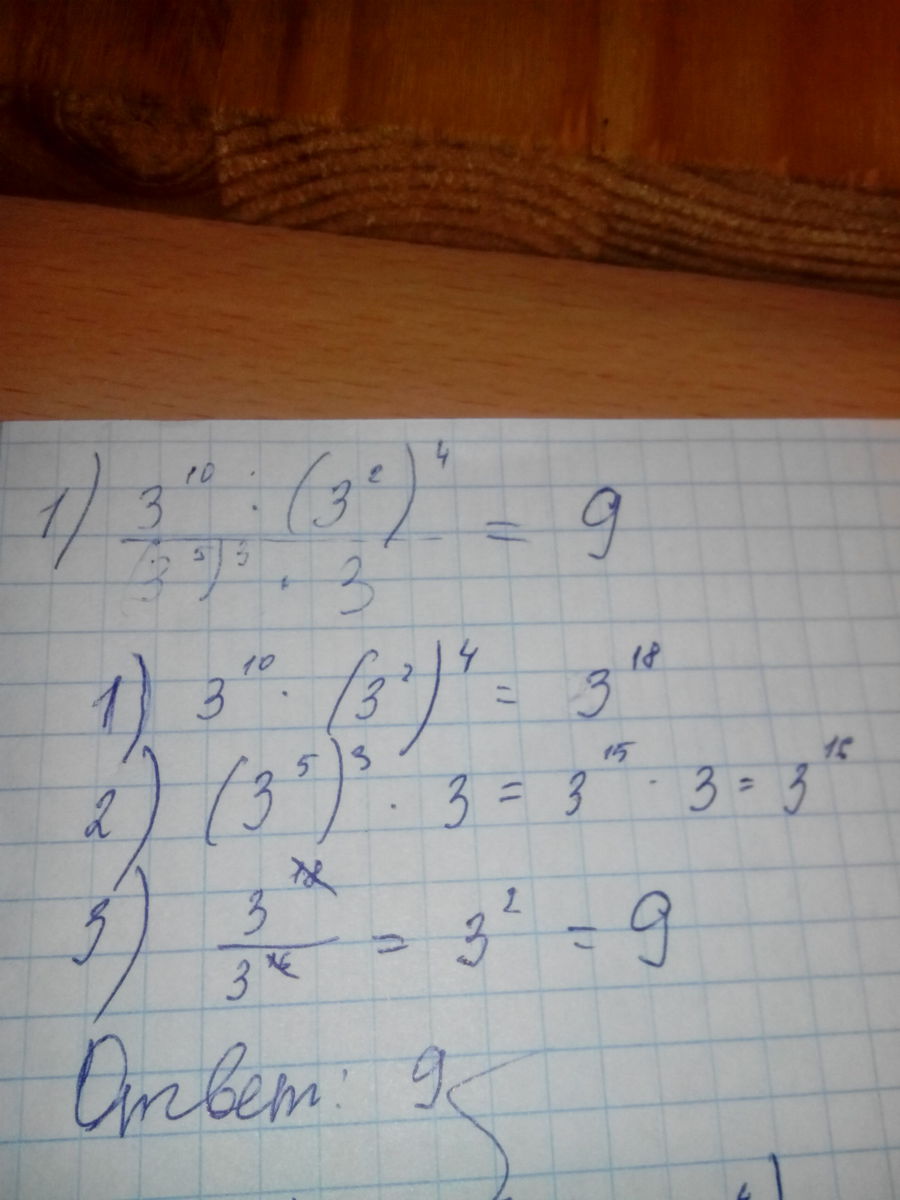 1) (3¹⁰ · (3²)⁴) / ((3⁵)³ · 3) = 9
1) 3¹⁰ · (3²)⁴ = 3¹⁸
2) (3⁵)³ · 3 = 3¹⁵ · 3 = 3¹⁶
3) 3¹⁸ / 3¹⁶ = 3² = 9
Ответ: 9